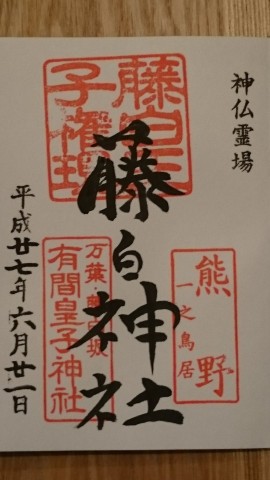 神仏霊場
藤白王
子権現
藤白神社
熊野
一之鳥居
万葉・藤白坂
有間皇子神社
平成廿七年六月廿一日